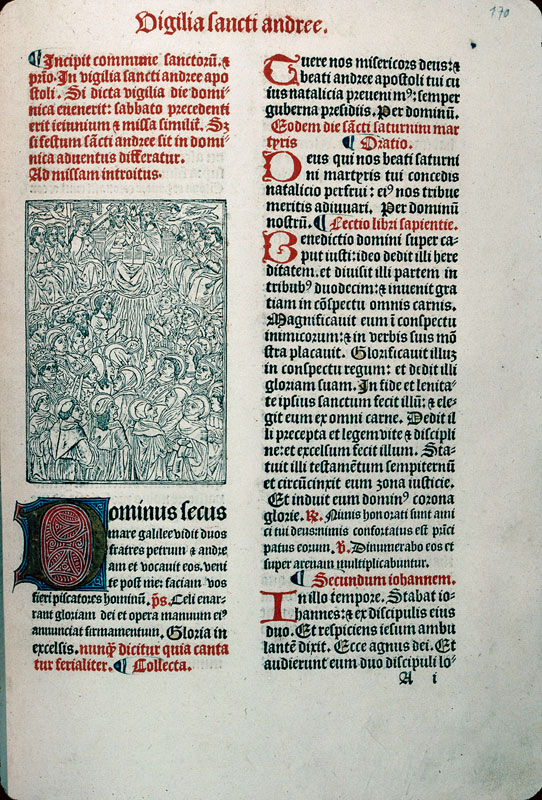 Vigilia sancti andree.
170
¶ Incipit commune sanctorū. ⁊
p̄mo. In vigilia sancti andree apo
stoli. Si dicta vigilia die domi-
nica euenerit: sabbato precedenti
erit ieiunium ⁊ missa similiter. Sꝫ
si festum sācti andree sit in domi-
nica aduentus differatur.
Ad missam introitus.
Dominus secus
mare galilee vidit duos
fratres petrum ⁊ andre
am et vocauit eos. veni
te post me: faciam vos
fieri piscatores hominū. p̄s. Celi enar-
rant gloriam dei et opera manuum eiꝰ
annunciat firmamentum. Gloria in
excelsis. nunqȝ dicitur quia canta
tur ferialiter. ¶ Collecta.
Tuere nos misericors deus: ⁊
beati andree apostoli tui cu
ius natalicia preuenimꝰ: semper
guberna presidiis. Per dominū.
Eodem die sācti saturnini mar
tyris ¶ Oratio.
Deus qui nos beati saturni
ni martyris tui concedis
natalicio perfrui: eiꝰ nos tribue
meritis adiuuari. Per dominū
nostrū. ¶ Lectio libri sapientie.
Benedictio domini super ca-
put iusti: ideo dedit illi here
ditatem. et diuisit illi partem in
tribubꝰ duodecim: ⁊ inuenit gra
tiam in cōspectu omnis carnis.
Magnificauit eum ī conspectu
inimicorum: ⁊ in verbis suis mō
stra placauit. Glorificauit illuꝫ
in conspectu regum: et dedit illi
gloriam suam. In fide et lenita-
te ipsius sanctum fecit illū: ⁊ ele-
git eum ex omni carne. Dedit il
li precepta et legem vite ⁊ discipli
ne: et excelsum fecit illum. Sta-
tuit illi testamētum sempiternū
et circūcinxit eum zona iusticie.
Et induit eum dominꝰ corona
glorie. ℟. Nimis honorati sunt ami
ci tui deus: nimis confortatus est prīci
patus eorum. ℣. Dinumerabo eos et
super arenam multiplicabuntur.
¶ Secundum iohannem.
In illo tempore. Stabat io-
hannes: ⁊ ex discipulis eius
duo. Et respiciens iesum ambu
lantē dixit. Ecce agnus dei. Et
audierunt eum duo discipuli lo-
A i